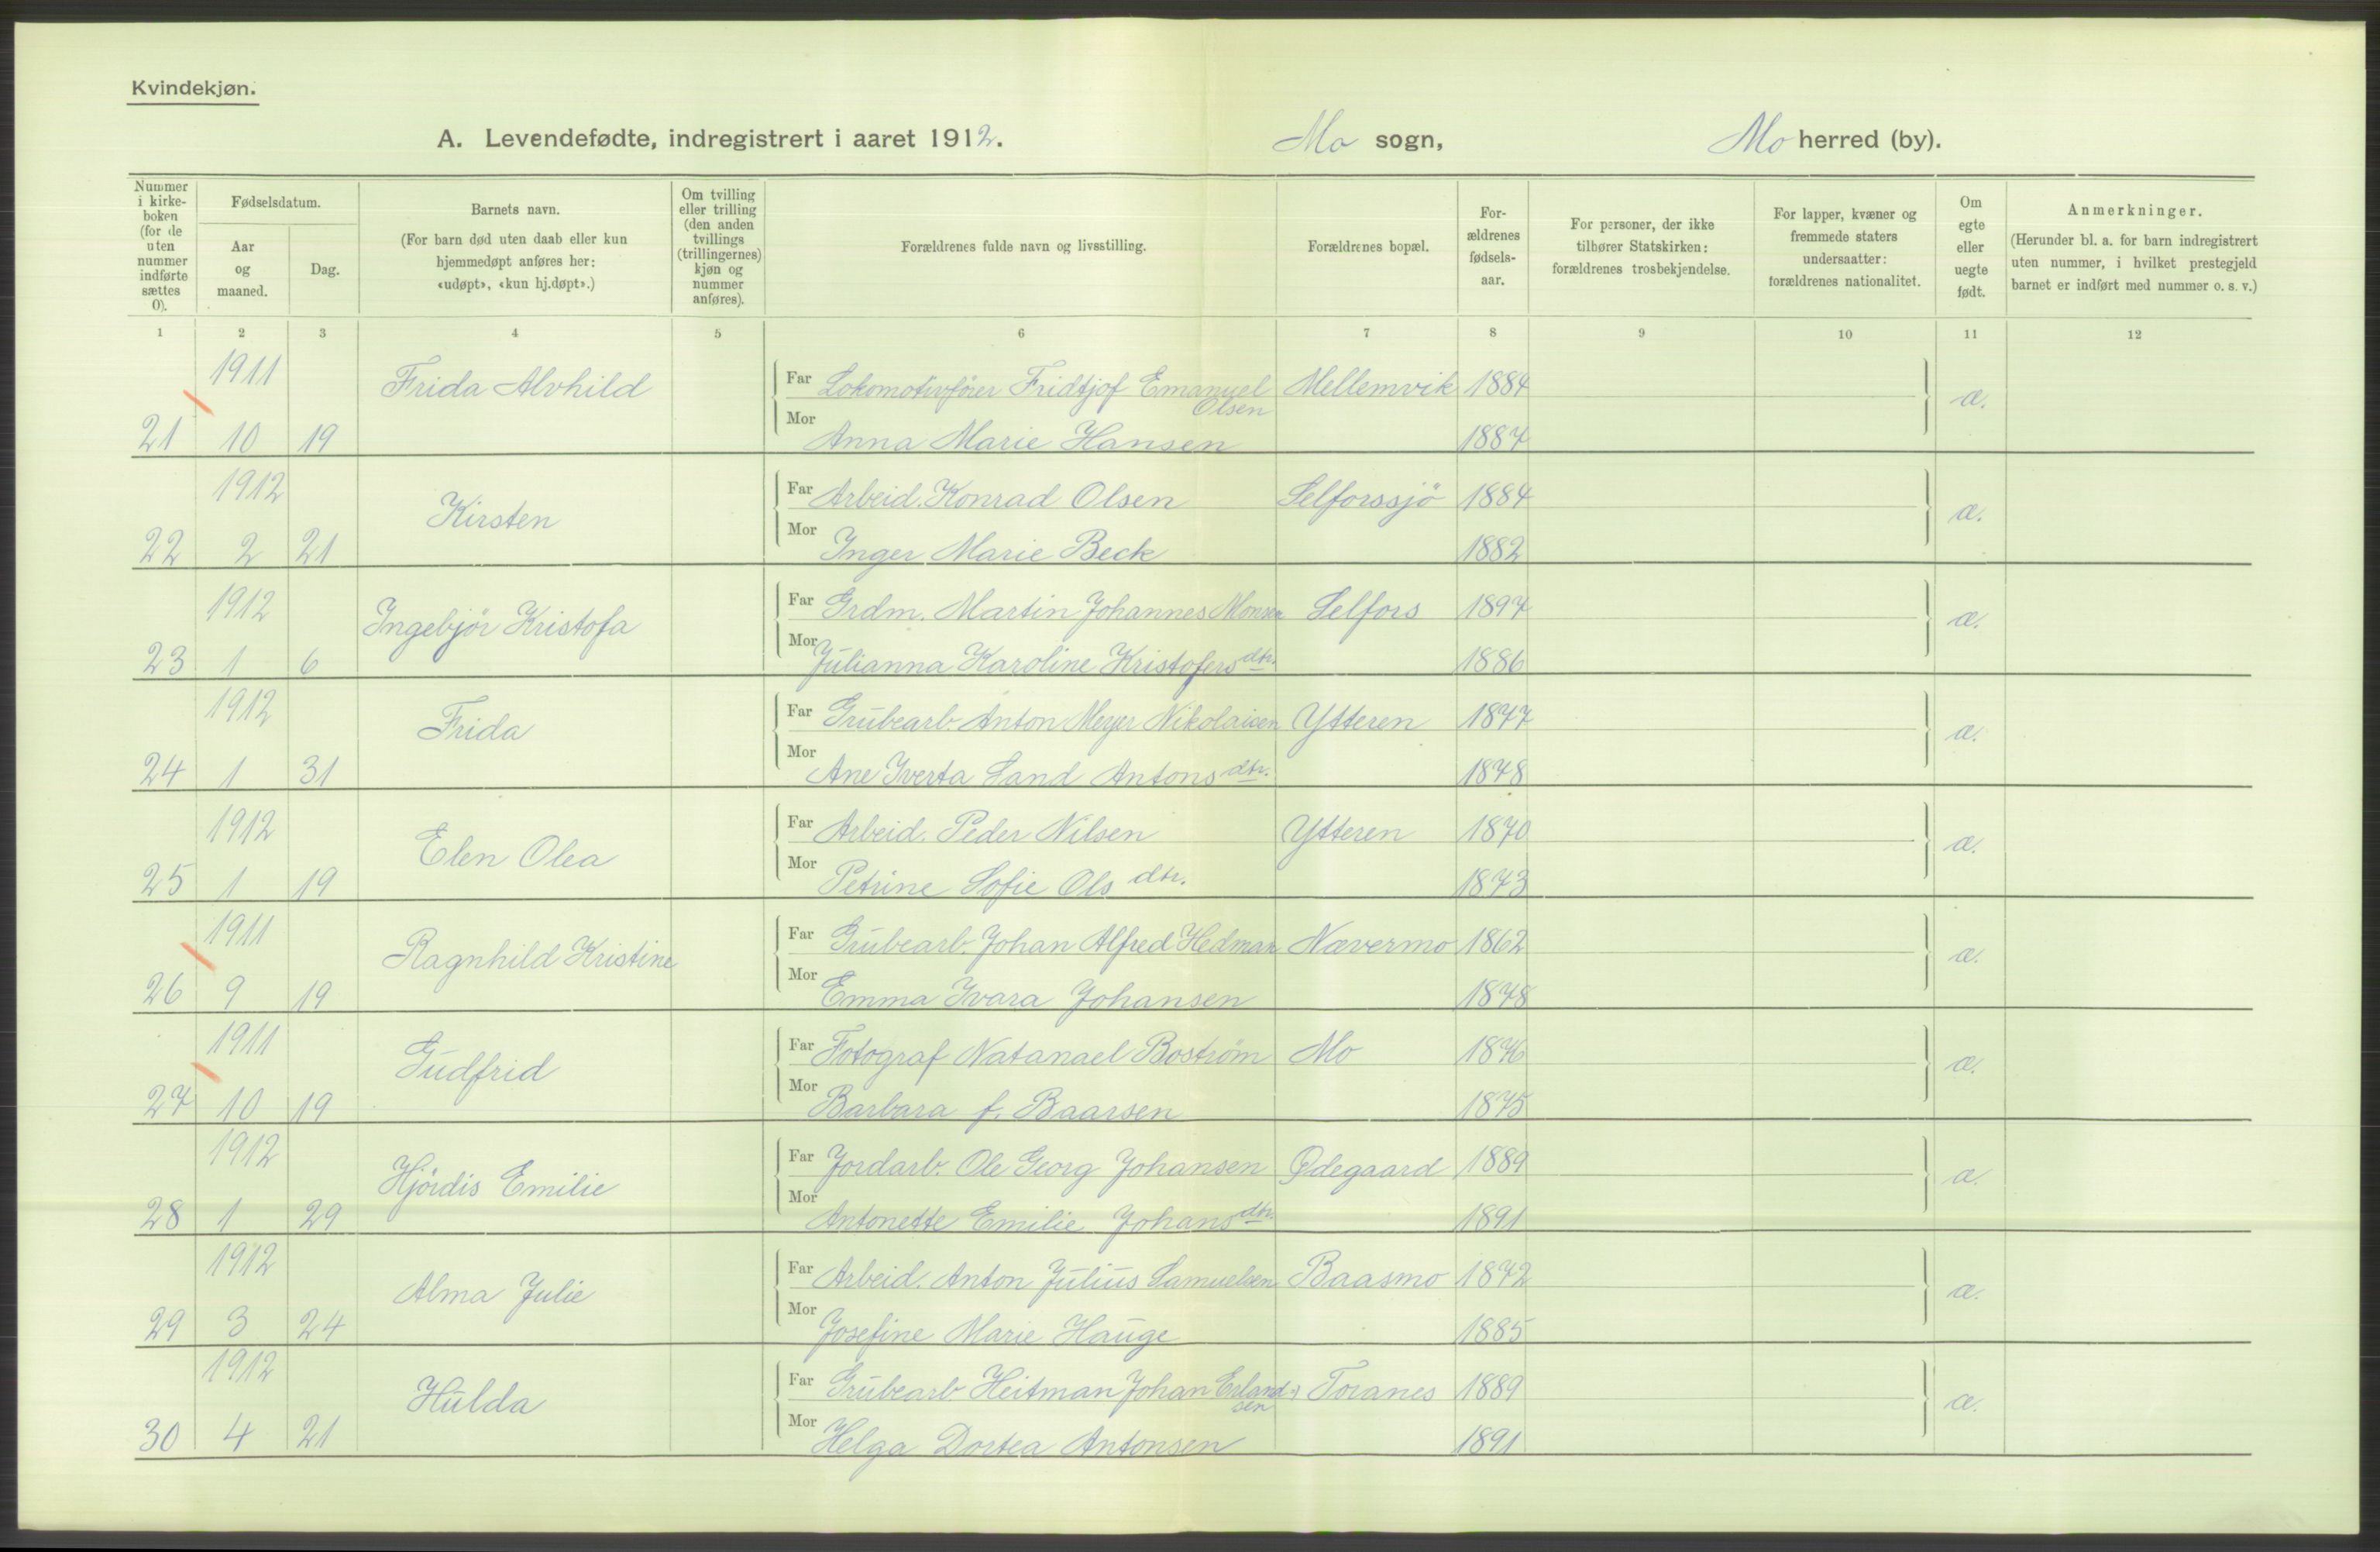 Kvindekjøn.
A. Levendefødte, indregistrert i aaret 1912. Mo sogn, Mo herred (by).
Nummer i kirkeboken (for de uten nummer indførte sættes 0).
Fødselsdatum.
Aar og maaned.
Dag.
Barnets navn.
(For barn død uten daab eller kun hjemmedøpt anføres her: «udøpt», «kun hj.døpt».)
Om tvilling eller trilling (den anden tvillings (trillingernes) kjøn og nummer anføres).
Forældrenes fulde navn og livsstilling.
Forældrenes bopæl.
Forældrenes fødselsaar.
For personer, der ikke tilhører Statskirken: forældrenes trosbekjendelse.
For lapper, kvæner og fremmede staters undersaatter: forældrenes nationalitet.
Om egte eller uegte født.
Anmerkninger.
(Herunder bl. a. for barn indregistrert uten nummer, i hvilket prestegjeld barnet er indført med nummer o. s. v.)
1 2 3 4 5 6 7 8 9 10 11 12
1911 Frida Alvhild Far Lokomotivfører Fridtjof Emanuel Olsen Mellemvik 1884 æ.
21 10 19 Mor Anna Marie Hansen 1887
1912 Kirsten Far Arbeid. Konrad Olsen Selforssjö 1884 æ.
22 2 21 Mor Inger Marie Beck 1882
1912 Ingebjör Kristofa Far Grdm. Martin Johannes Monsen Selfors 1897 æ.
23 1 6 Mor Julianna Karoline Kristofersdtr. 1886
1912 Frida Far Grubearb. Anton Meyer Nikolaisen Ytteren 1877 æ.
24 1 31 Mor Ane Iverta Sand Antonsdtr. 1878
1912 Elen Olea Far Arbeid. Peder Nilsen Ytteren 1870 æ.
25 1 19 Mor Petrine Sofie Ols dtr. 1873
1911 Ragnhild Kristine Far Grubearb. Johan Alfred Hedman Nævermo 1862 æ.
26 9 19 Mor Emma Ivara Johansen 1878
1911 Gudfrid Far Fotograf Natanael Boström Mo 1876 æ.
27 10 19 Mor Barbara f. Baarsen 1875
1912 Hjördis Emilie Far Jordarb. Ole Georg Johansen Ødegaard 1889 æ.
28 1 29 Mor Antonette Emilie Johansdtr. 1891
1912 Alma Julie Far Arbeid. Anton Julius Samuelsen Baasmo 1872 æ.
29 3 24 Mor Josefine Marie Hauge 1885
1912 Hulda Far Grubearb. Heitman Johan Erlandsen Toranes 1889 æ.
30 4 21 Mor Helga Dortea Antonsen 1891